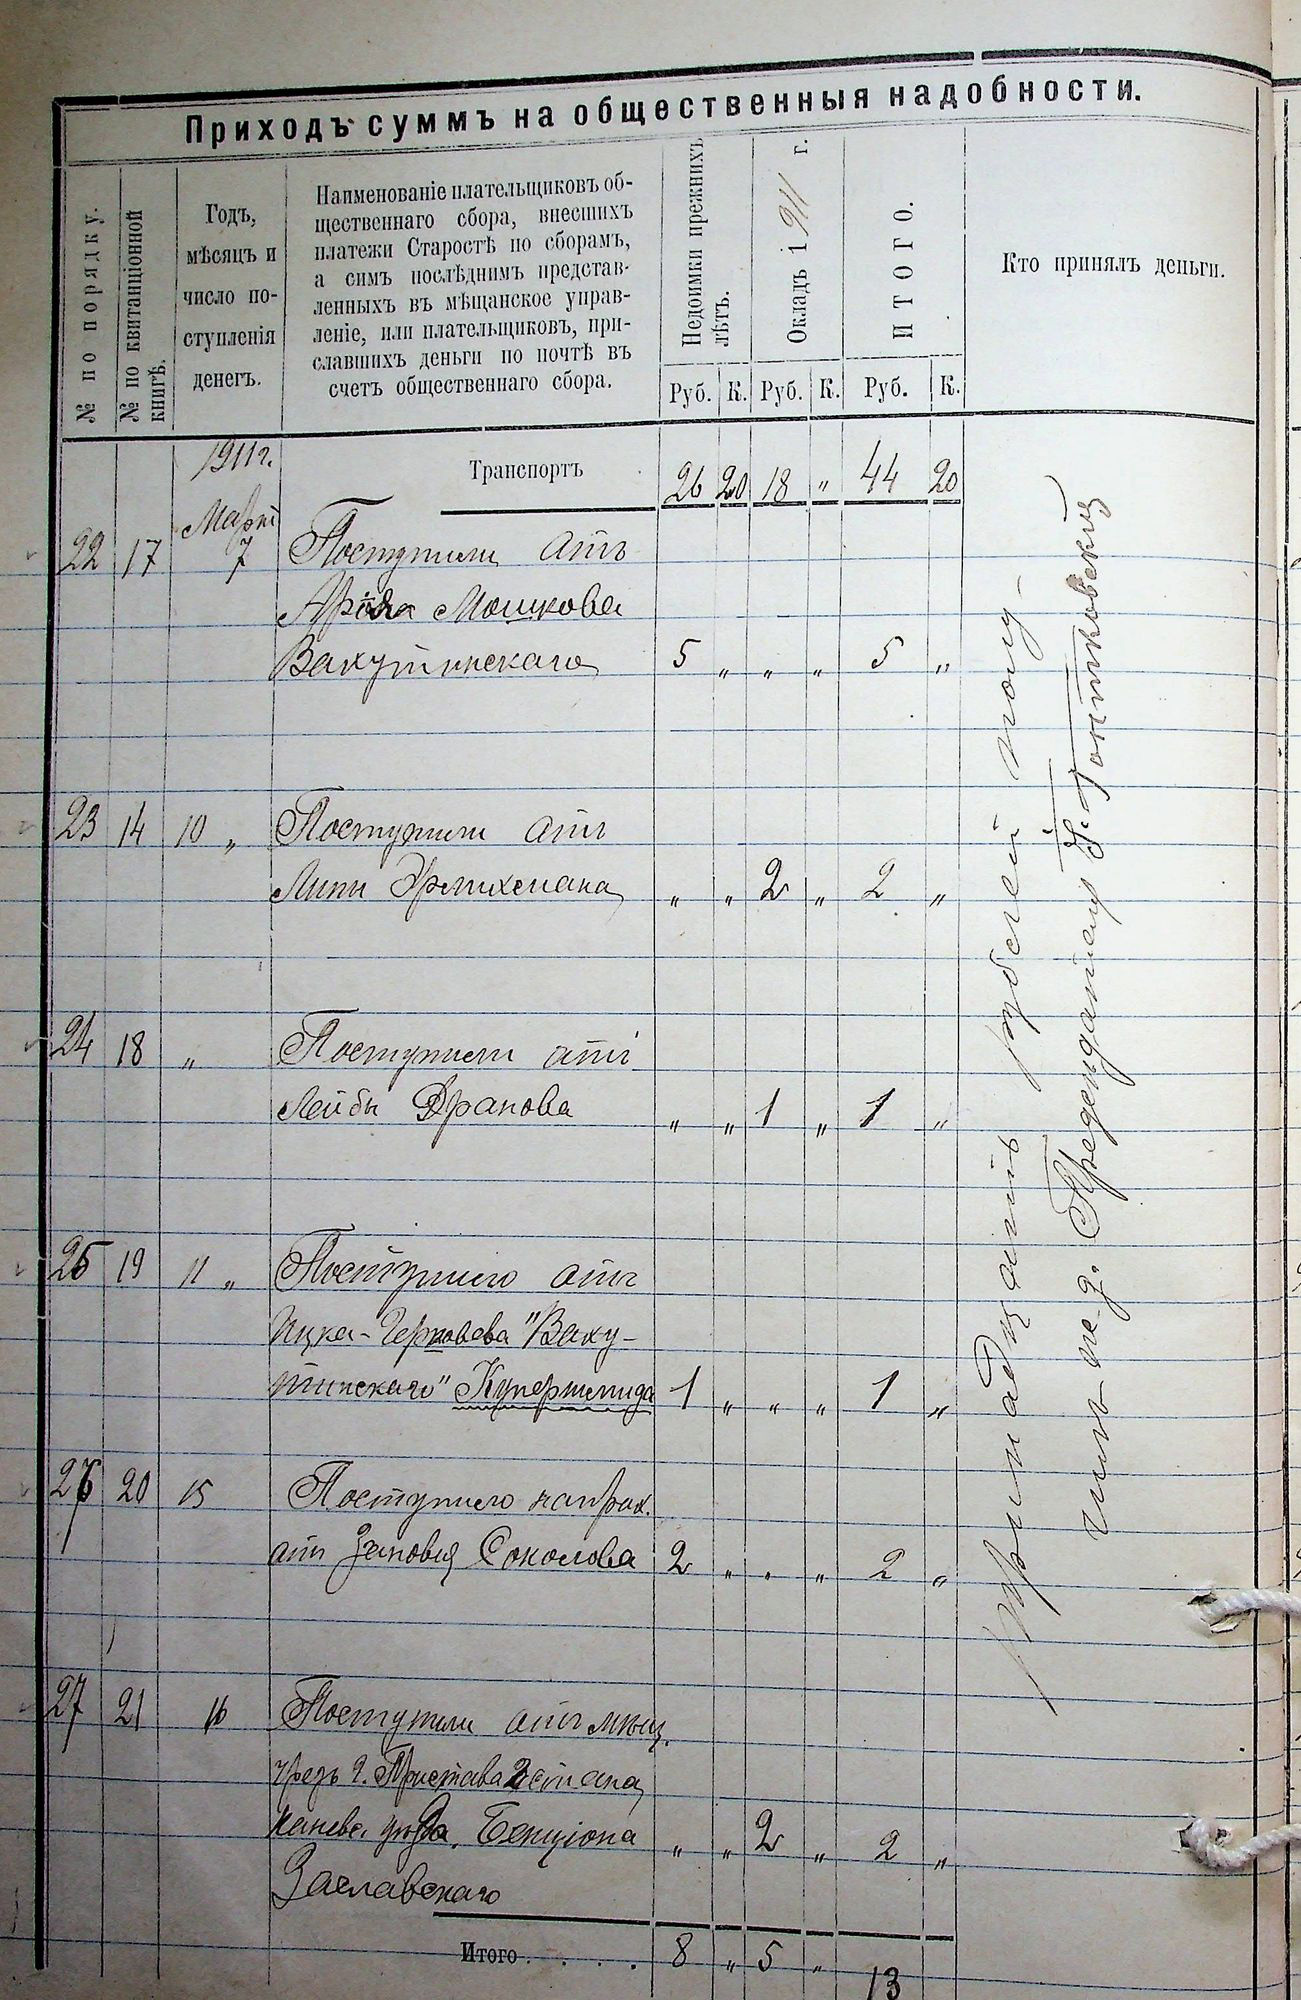 Приходъ суммъ на общественныя надобности.
№ по порядку.
№ по квитанціонной
книгѣ.
Годъ,
мѣсяцъ и
число по-
ступленія
денегъ.
Наименованіе плательщиковъ об-
щественнаго сбора, внесшихъ
платежи Старостѣ по сборамъ,
а симъ послѣднимъ представ-
ленныхъ въ мѣщанское управ-
леніе, или плательщиковъ, при-
славшихъ деньги по почтѣ въ
счетъ общественнаго сбора.
Недоимки прежнихъ
лѣтъ.
Окладъ 1911 г.
ИТОГО.
Кто принялъ деньги.
Руб. К. Руб. К. Руб. К.
1911 г. Транспортъ 26 20 18 " 44 20
Мартъ
22 17 7 Поступили отъ
Арона Мошкова
Вахутинскаго 5 " " " 5 "
23 14 10 " Поступили отъ
Липы Эрлихмана " " 2 " 2 "
24 18 " Поступили отъ
Лейбы Драпова " " 1 " 1 "
25 19 11 " Поступило отъ
Ицка-Герковева "Ваху-
тинскаго" Купершмида 1 " " " 1 "
26 20 15 Поступило
отъ Соколова 2 " " " 2 "
27 21 16 Поступили отъ мѣщ.
чрезъ г. Пристава 2 стана
Каневс. уѣзда, Бенціона " " 2 " 2 "
Заславскаго
Итого . . . . 8 " 5 " 13
тринадцать рублей полу-
чилъ и. д. Предсѣдателя